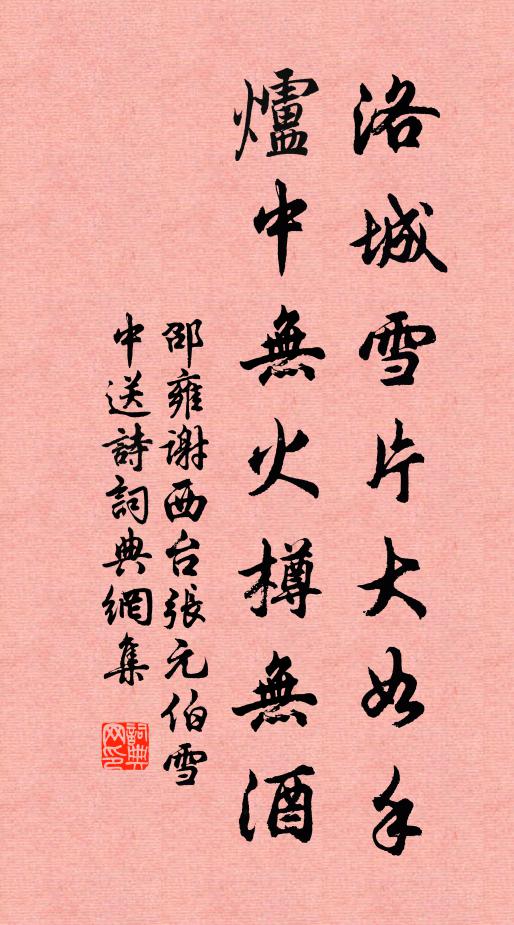 洛城雪片大如手
爐中無火樽無酒
邵雍謝西台張元伯雪
中送詩詞典網集
詞典網印